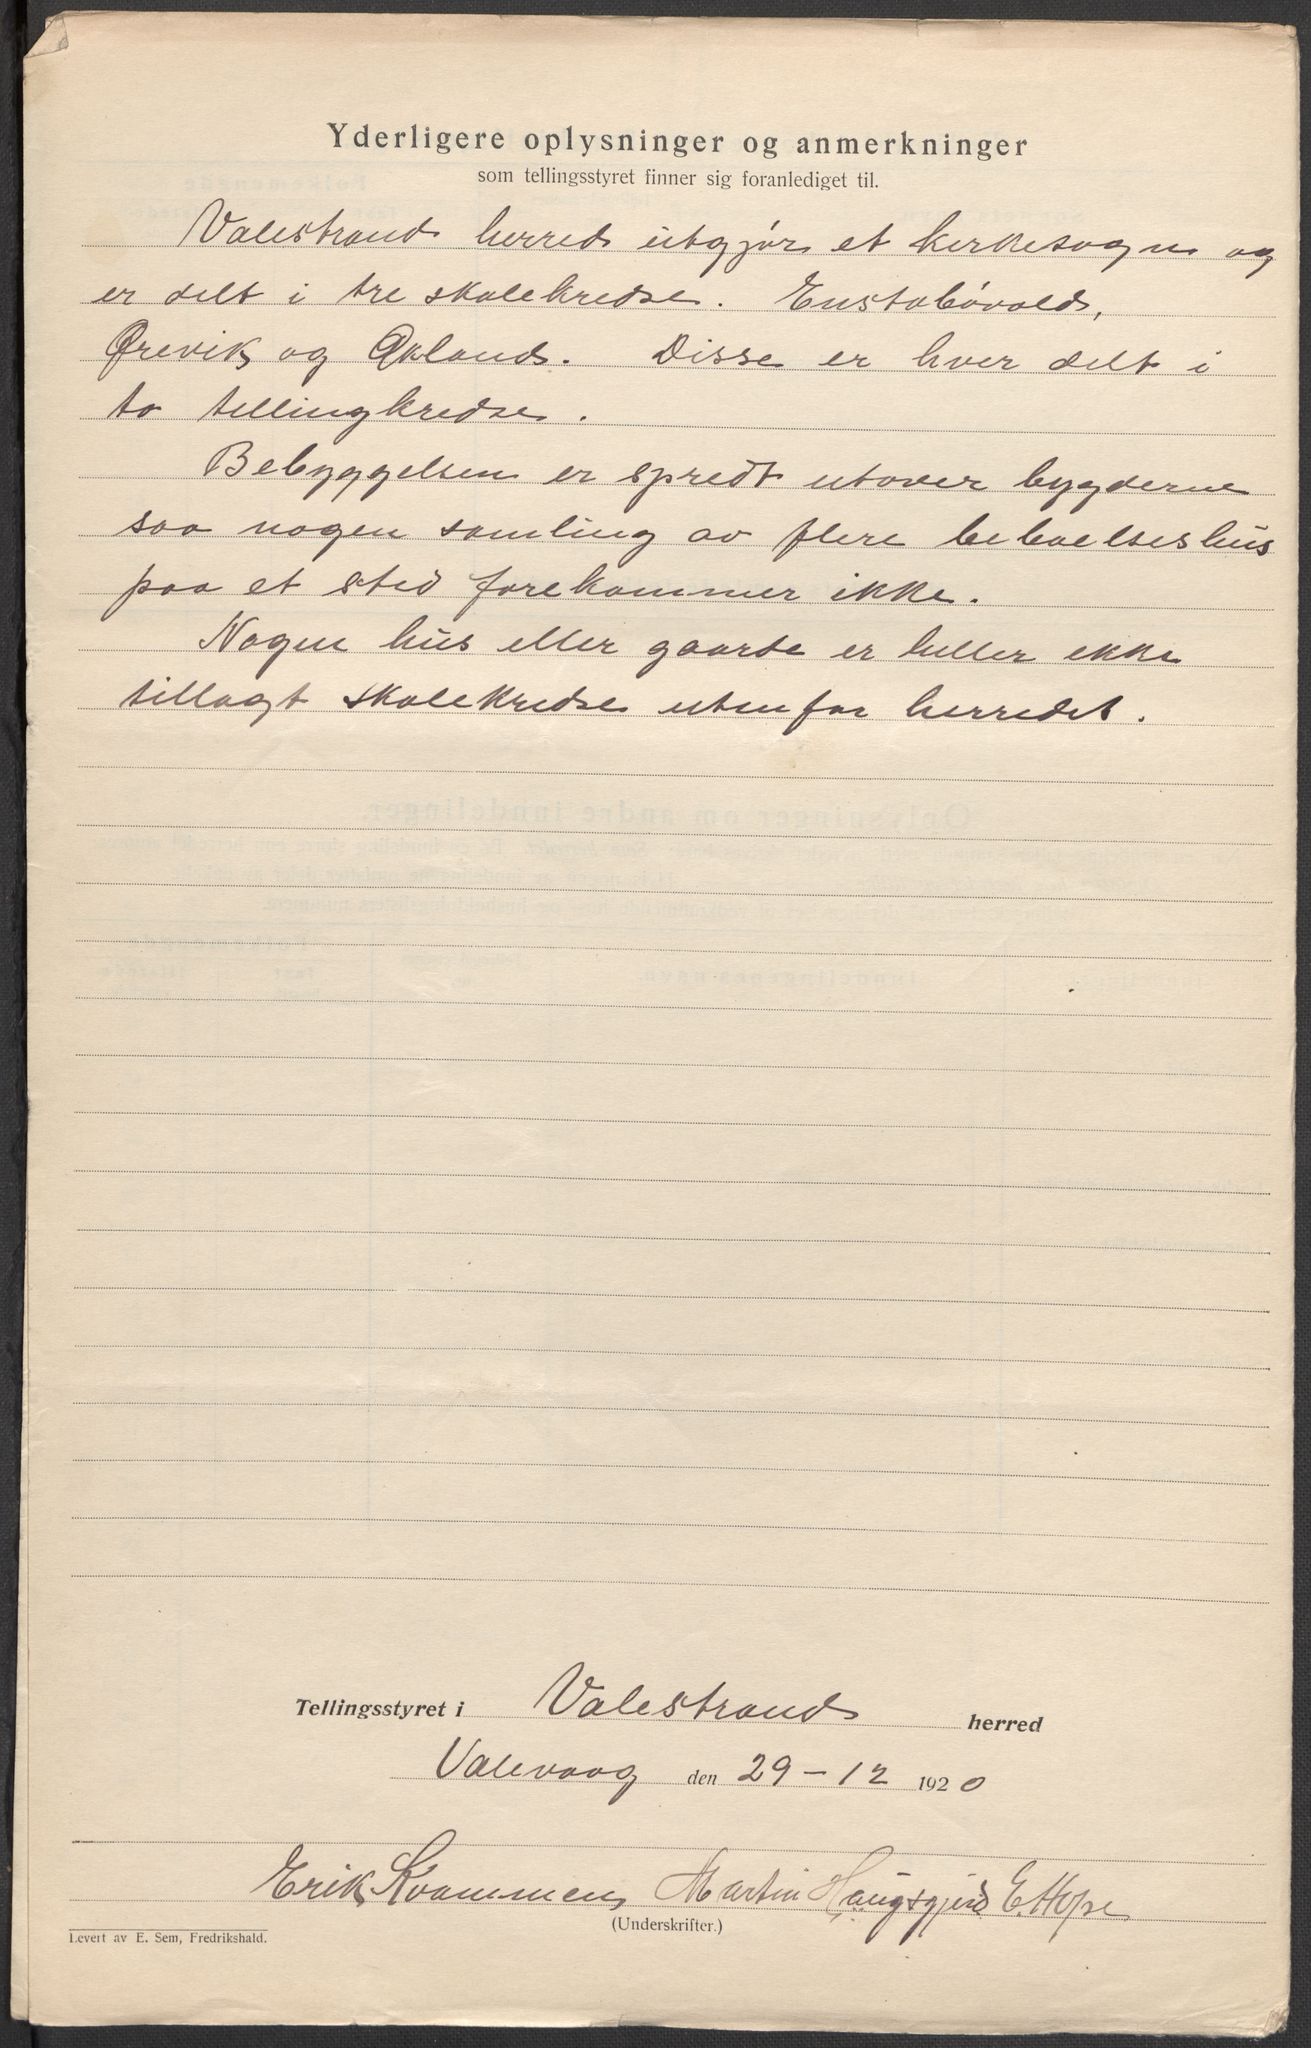 Yderligere oplysninger og anmerkninger
som tellingsstyret finner sig foranlediget til.
Valestrand herred utgjør et kirkesogn og
er delt i tre skolekredse. Enstabóvold,
Ørevik og Økland. Disse er hver delt i
to tellingkredse.
Bebyggelsen er spredt utover bygderne
saa nogen samling av flere beboelseshus
paa et sted forekommer ikke.
Nogen hus eller gaarde er heller ikke
tillagt skolekredse utenfor herredet.
Tellingsstyret i Valestrand herred
Valevaag den 29-12 1920
Erik Kvammen Martin Haugsgjerd E. Hope
(Underskrifter.)
Levert av E. Sem, Fredrikshald.